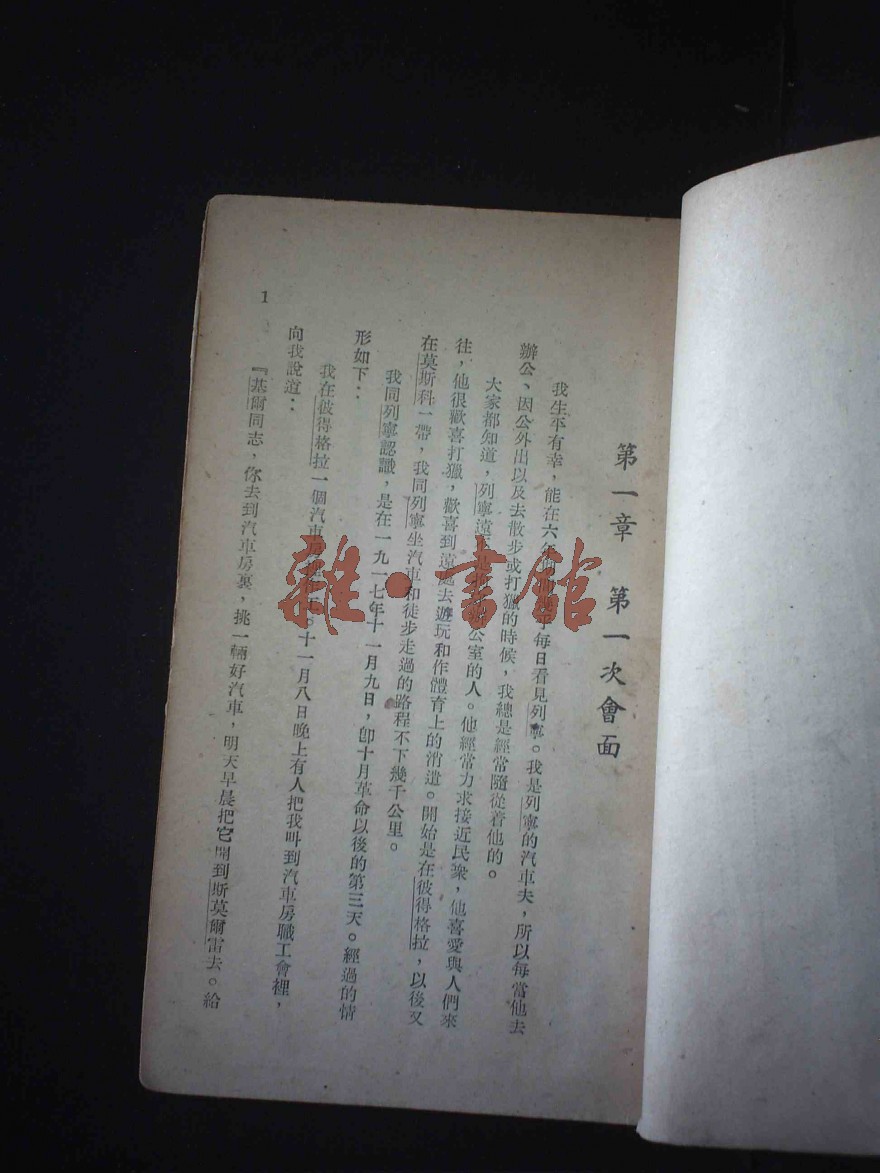 第一章　第一次會面
我生平有幸，能在六年間每日看見列寧。我是列寧的汽車夫，所以每當他去
辦公、因公外出以及去散步或打獵的時候，我總是經常隨從着他的。
大家都知道，列寧遠公室的人。他經常力求接近民衆，他喜愛與人們來
往，他很歡喜打獵，歡喜到遠處去遊玩和作體育上的消遣。開始是在彼得格拉，以後又
在莫斯科一帶，我同列寧坐汽車和徒步走過的路程不下幾千公里。
我同列寧認識，是在一九一七年十一月九日，卽十月革命以後的第三天。經過的情
形如下：
我在彼得格拉一個汽車房。十一月八日晚上有人把我叫到汽車房職工會裡，
向我說道：
『基爾同志，你去到汽車房裏，挑一輛好汽車，明天早晨把它開到斯莫爾雷去。給
1
雜·書館